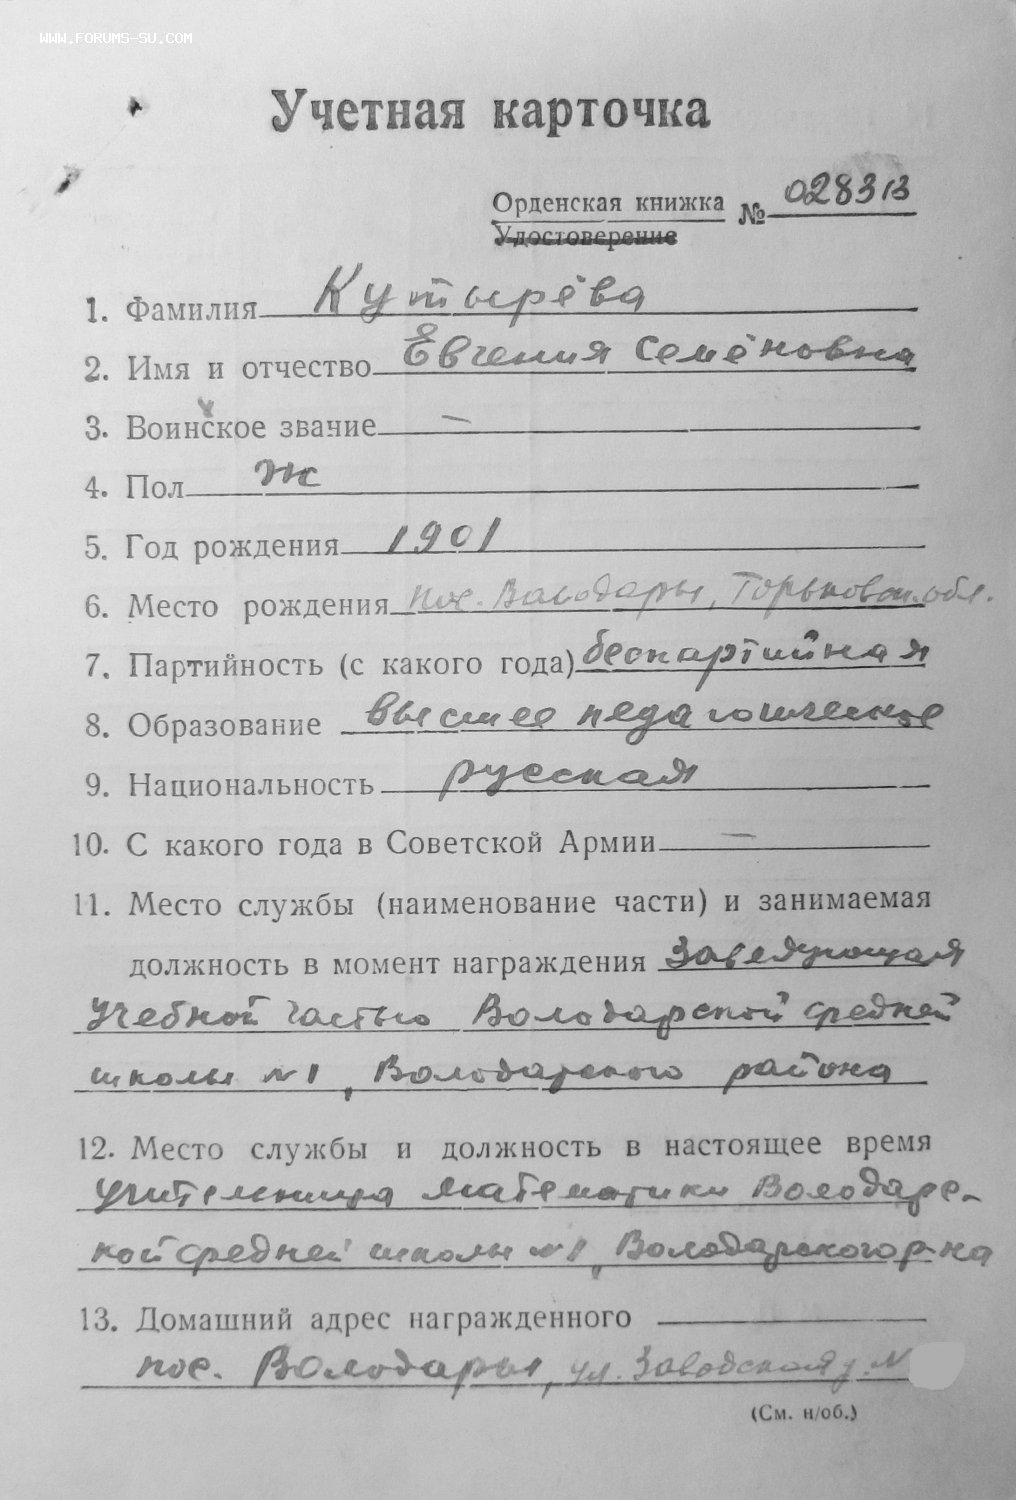 WWW.FORUMS-SU.COM
Учетная карточка
Орденская книжка № 028313
Удостоверение
1. Фамилия Кутырёва
2. Имя и отчество Евгения Семёновна
3. Воинское звание —
4. Пол Ж
5. Год рождения 1901
6. Место рождения пос. Володары, Горьковск. обл.
7. Партийность (с какого года) беспартийная
8. Образование высшее педагогическое
9. Национальность русская
10. С какого года в Советской Армии —
11. Место службы (наименование части) и занимаемая
должность в момент награждения Заведующая
учебной частью Володарской средней
школы №1, Володарского района
12. Место службы и должность в настоящее время
учительница математики Володарс-
кой средней школы №1, Володарского р-на
13. Домашний адрес награжденного
пос. Володары, ул. Заводская д. №
(См. н/об.)